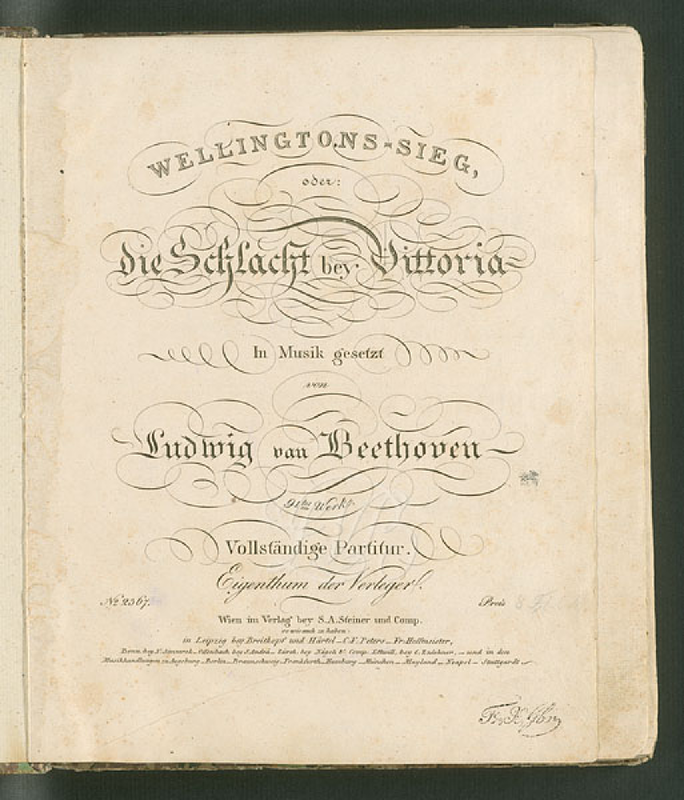 WELLINGTONS-SIEG,
oder:
die Schlacht bey Vittoria
In Musik gesetzt
von
Ludwig van Beethoven
91tes Werk.
Vollständige Partitur.
Eigenthum der Verleger.
No. 2367. Preis
Wien im Verlag bey S.A. Steiner und Comp.
so wie auch zu haben:
in Leipzig bey Breitkopf und Härtel _ C.F. Peters _ Fr. Hoffmeister,
Bonn bey N. Simrock _ Offenbach bey J. André _ Zürch bey Nägeli & Comp. _ bey _ und in den
Musikhandlungen zu Augsburg _ Berlin _ Braunschweig _ Frankfurth _ Hamburg _ München _ Mayland _ Neapel _ Stuttgardt